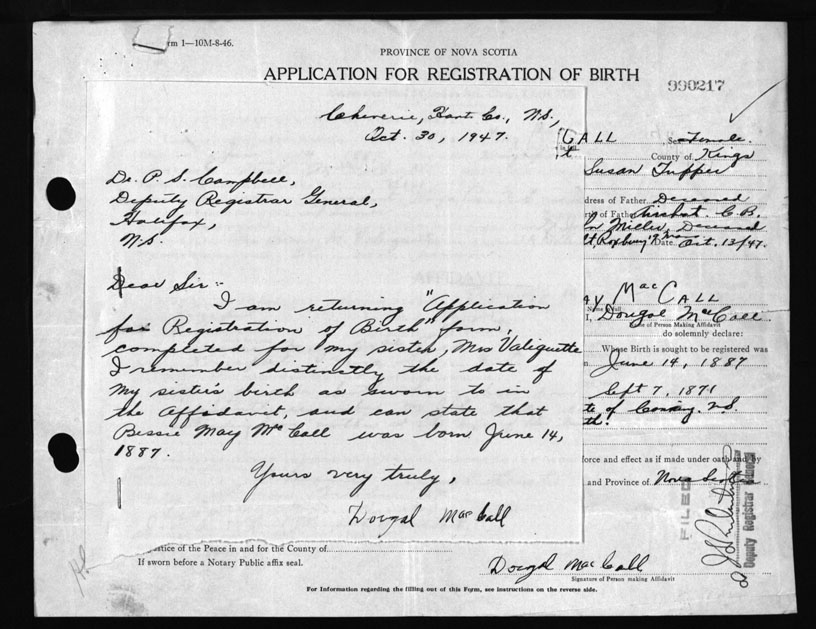 rm 1—10M-8-46.
PROVINCE OF NOVA SCOTIA
APPLICATION FOR REGISTRATION OF BIRTH
990217
Cheverie, Hant. Co., N.S.,
Oct. 30, 1947.
Dr. P. S. Campbell,
Deputy Registrar General,
Halifax,
N.S.
Dear Sir:-
I am returning "Application
for Registration of Birth" form,
completed for my sister, Mrs Valiquette
I remember distinctly the date of
my sister's birth as sworn to in
the Affadavit, and can state that
Bessie May McCall was born June 14,
1887.
Yours very truly,
Dougal MacCall
CALL Sex Female
County of Kings
Susan Tupper
dress of Father Deceased
of Father Arichat. C.B.
Miller, Deceased
Roxbury Date Oct. 13/47.
AY MACCALL
Dougal MacCall
me of Person Making Affidavit
do solemnly declare:
Whose Birth is sought to be registered was
June 14, 1887
Sept 7, 1871
te of N.S.
th.
force and effect as if made under oath and by
and Province of Nova Scotia
FILED
Deputy Registrar General
Justice of the Peace in and for the County of
If sworn before a Notary Public affix seal.
Dougal MacCall
Signature of Person making Affidavit
For Information regarding the filling out of this Form, see instructions on the reverse side.